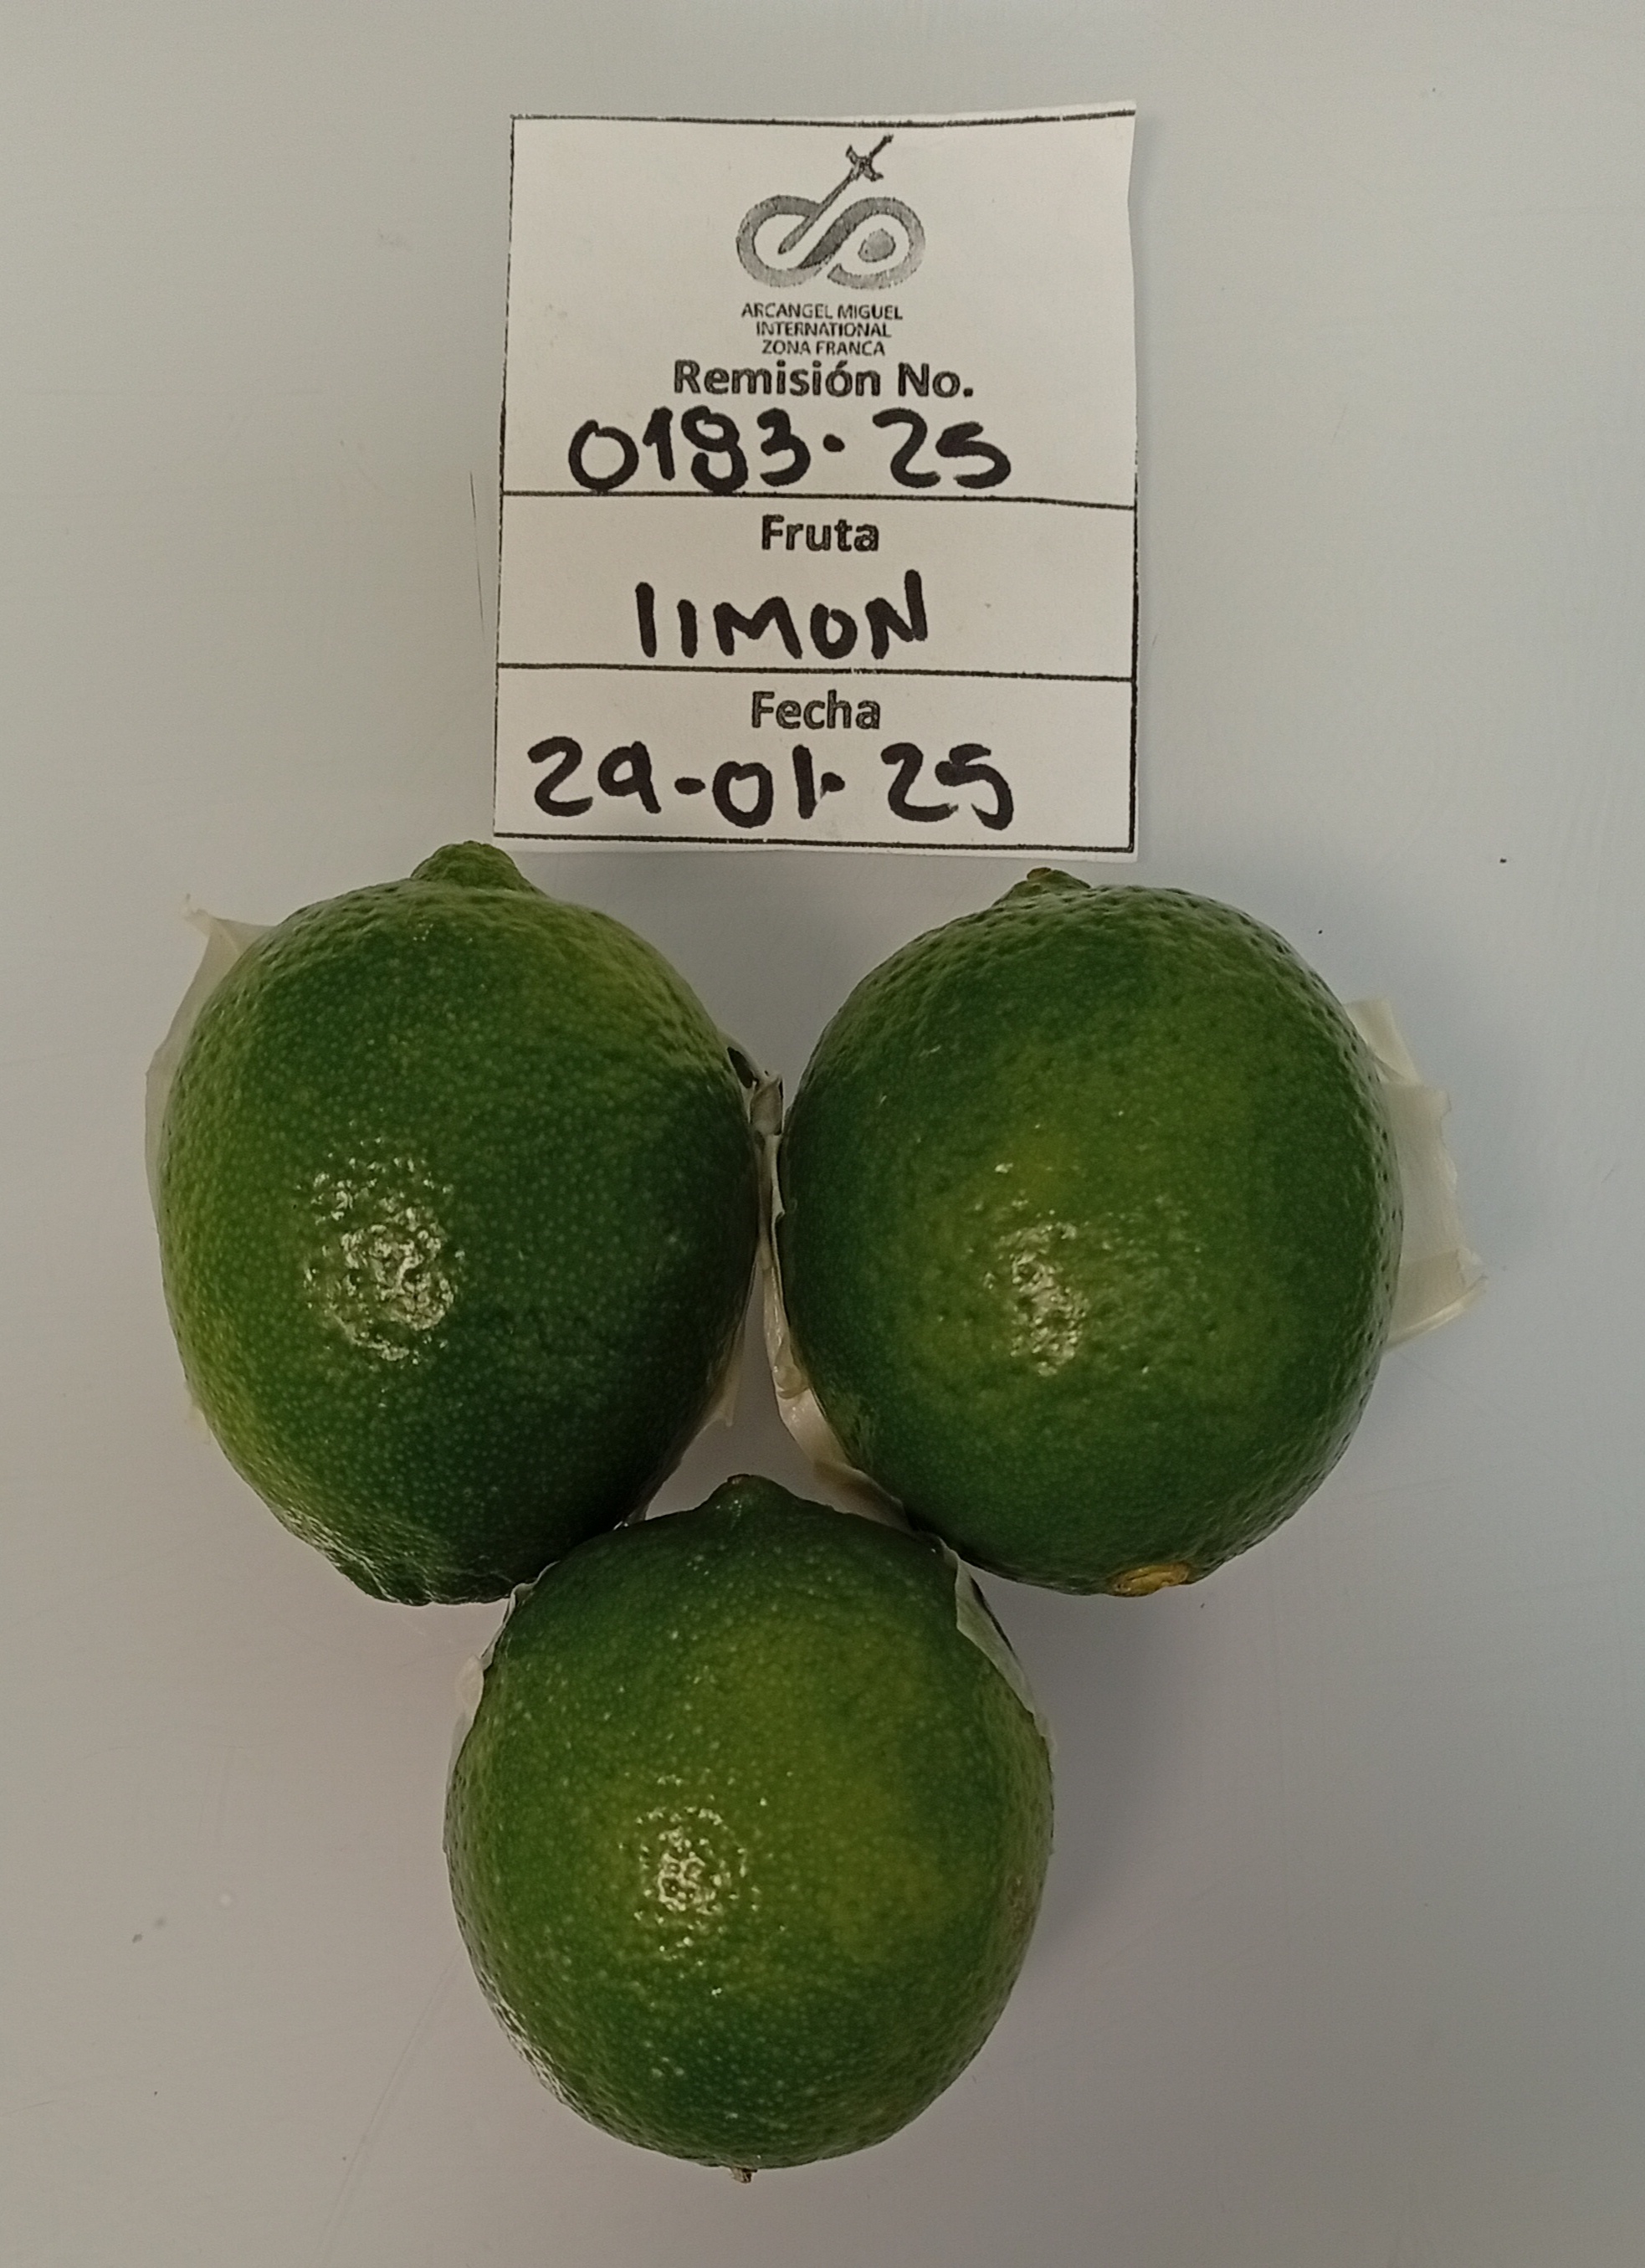 ARCANGEL MIGUEL
INTERNATIONAL
ZONA FRANCA
Remisión No.
0193-25
Fruta
lIMON
Fecha
29-01-25